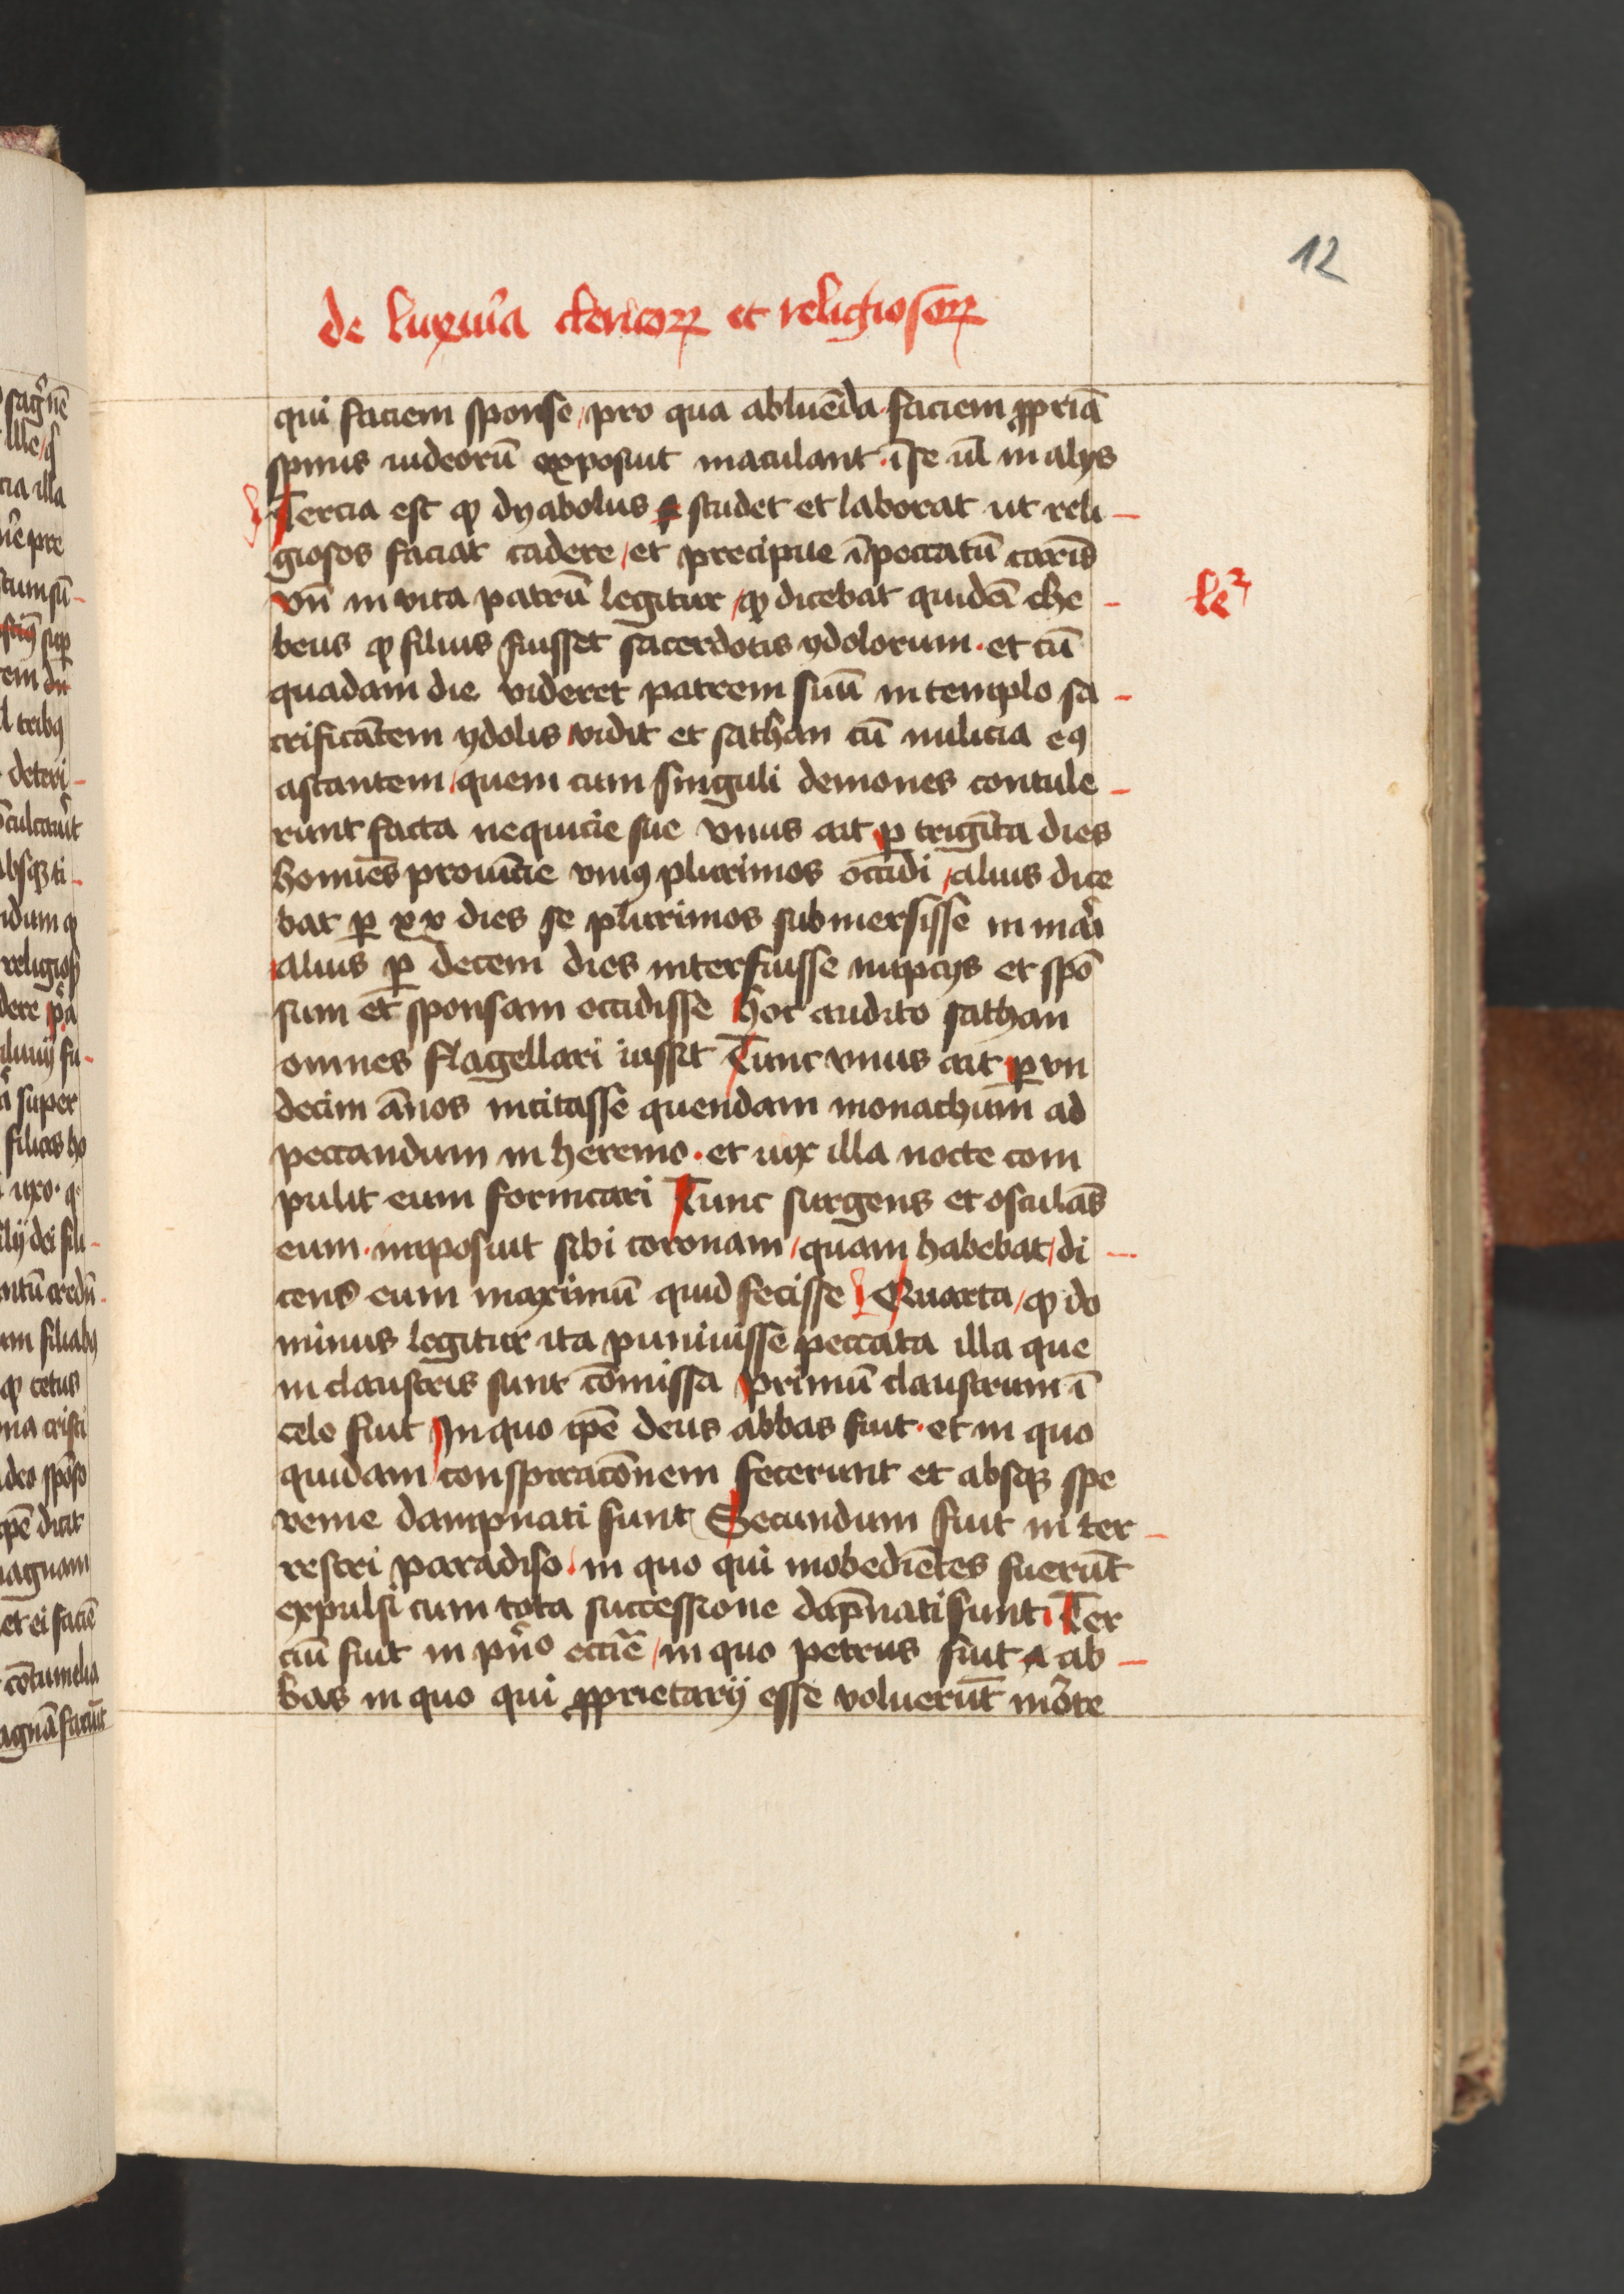 12
de luxur̃ia clericoꝝ et religiosoꝝ
qui faciem sponse / pro qua abluēda · faciem ꝓpriā
spinis iudeorū exposuit maculant · ī se ul̄ in alijs
Tercia est ꝙ dyabolus studet et laborat ut reli-
giosos faciat cadere / et precipue ī peccatū carīs
le²
vn̄ in vita patrū legitur / ꝙ dicebat quidā the-
beus ꝙ filius fuisset sacerdotis ydolorum · et cū
quadam die videret patrem suū in templo sa-
crificātem ydolis / vidit et sathan cū milicia eꝰ
astantem / quem cum singuli demones contule-
runt facta nequicie sue vnus ait ꝑ trigīta dies
homīes prouīcie vniꝰ plurimos occidi / alius dice
bat ꝑ xx dies se plurimos submersisse in mar̃i
alius ꝑ decem dies interfuisse nupcijs et spō
sum et sponsam occidisse Hoc audito sathan
omnes flagellari iussit Tunc vnus ait ꝑ vn
decim ānos incitasse quendam monachum ad
peccandum in heremo · et uix illa nocte com
pulit eum fornicari Tunc surgens et osculās
eum · imposuit sibi coronam / quam habebat / di-
cens eum maximū quid fecisse Quarta / ꝙ do
minus legitur ita puniuisse peccata illa que
in claustris sunt cōmissa primū claustrum ī
celo fuit In quo ip̄e deus abbas fuit · et in quo
quidam conspiracōnem fecerunt et absqꝫ spe
venie dampnati sunt Secundum fuit in ter-
restri paradiso · in quo qui inobediētes fuerūt
expulsi cum tota successione dap̄nati sunt · Ter
ciū fuit in pn̄o ecc̄ie / in quo petrus fuit ab-
bas in quo qui ꝓprietarij esse voluerūt mōte